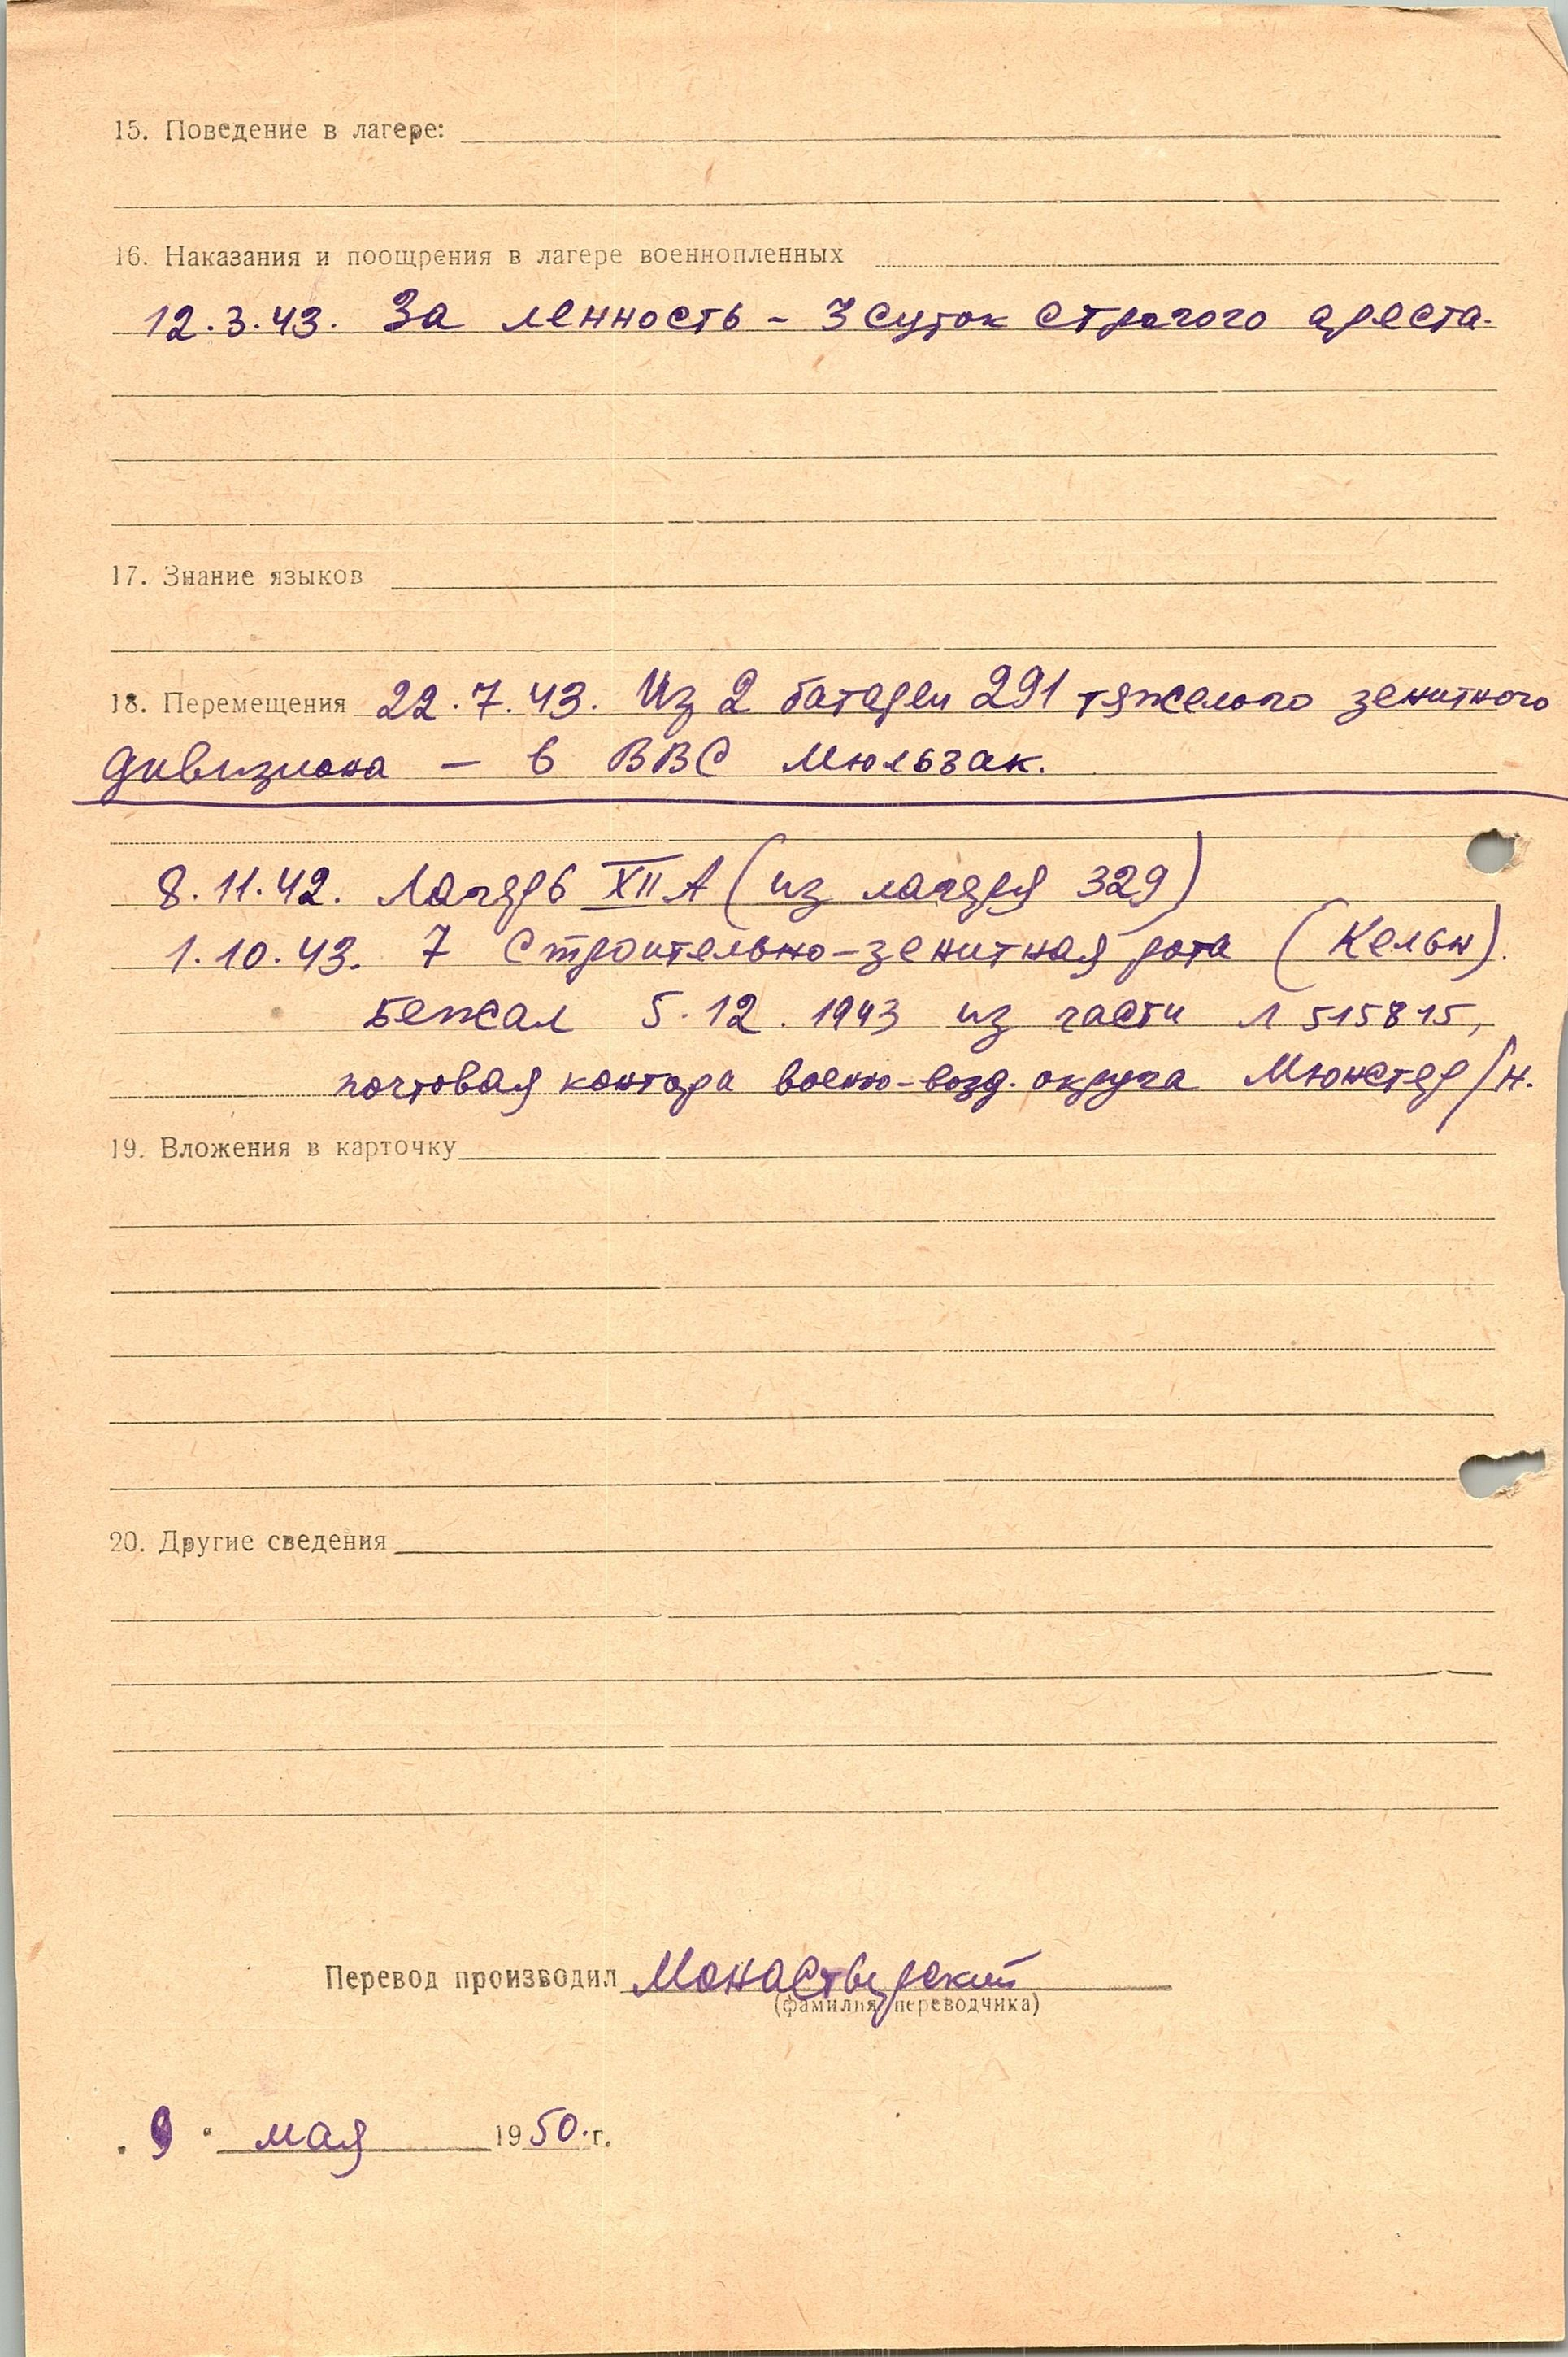 15. Поведение в лагере:
16. Наказания и поощрения в лагере военнопленных
12.3.43. За ленность - 3 суток строгого ареста.
17. Знание языков
18. Перемещения 22.7.43. Из 2 батареи 291 тяжелого зенитного
дивизиона — в ВВС Мюльзак.
8.11.42. Лагерь XII А (из лагеря 329)
1.10.43. 7 строительно-зенитная рота (Кельн).
Бежал 5.12.1943 из части Л 515815,
почтовая контора военно-возд. округа Мюнстер/н.
19. Вложения в карточку
20. Другие сведения
Перевод производил Монастырский
(фамилия переводчика)
"9" мая 1950.г.